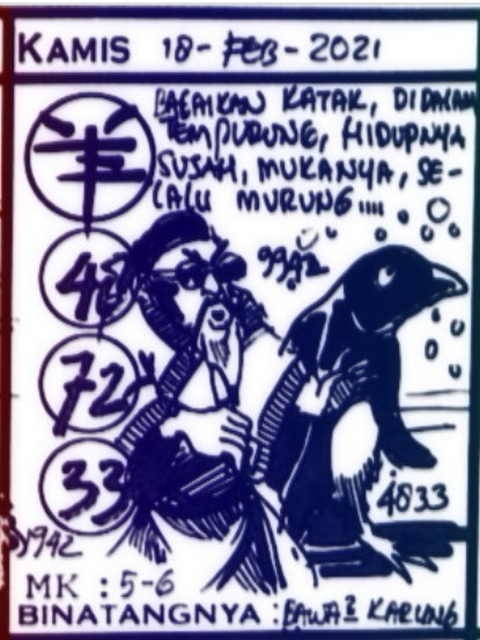 KAMIS 18-FEB-2021
BAGAIKAN KATAK, DIDALAM
TEMPURUNG, HIDUPNYA
SUSAH, MUKANYA, SE-
LALU MURUNG....
羊
48
9942
72
33
4833
1942
MK : 5-6
BINATANGNYA : BAWA2 KARUNG